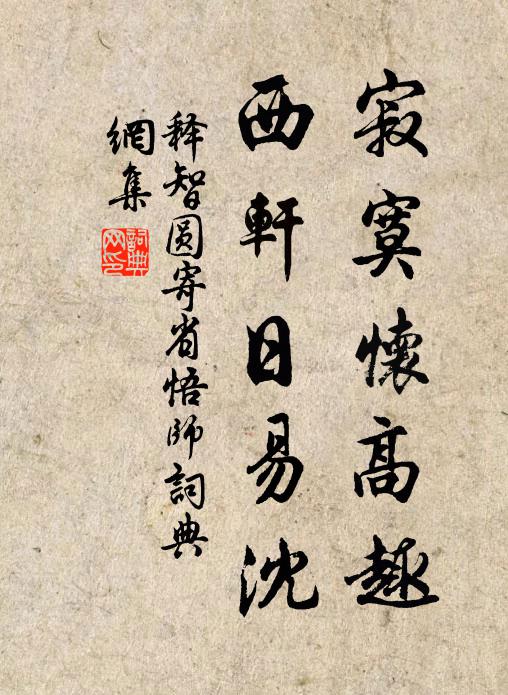 寂寞懷高趣
西軒日易沈
释智圆寄省悟師詞典
網集
詞典網印